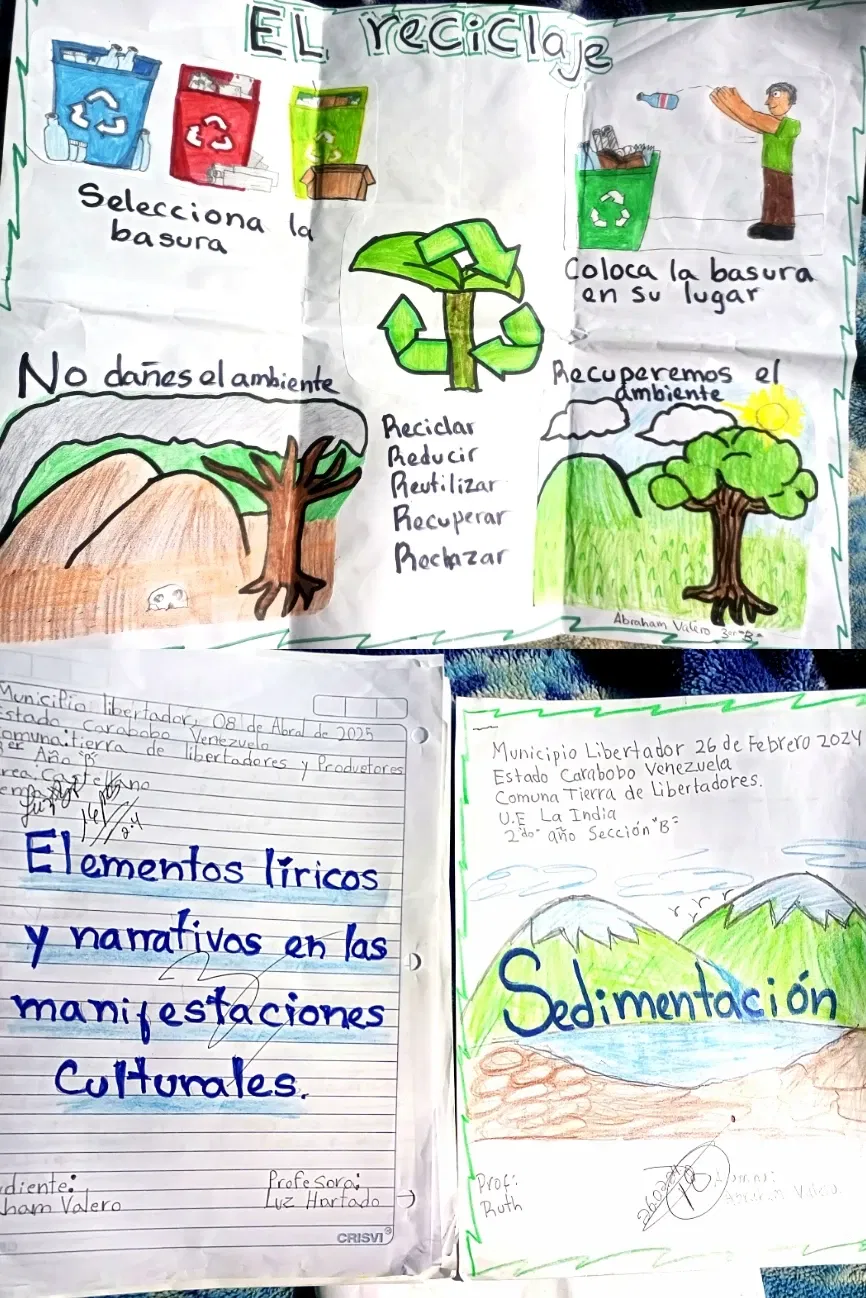 EL reciclaje
Selecciona la
basura
Coloca la basura
en su lugar
No dañes el ambiente
Recuperemos el
ambiente
Reciclar
Reducir
Reutilizar
Recuperar
Rechazar
Abraham Valero 3er "B"
Municipio libertador, 08 de Abral de 2025
Estado Carabobo Venezuela
Comuna: tierra de libertadores y Productores
er Año "B"
rea: Castellano
Elementos líricos
y narrativos en las
manifestaciones
Culturales.
diente:
ham Valero
Profesora:
Luz Hurtado
CRISVI
Municipio Libertador 26 de Febrero 2024
Estado Carabobo Venezuela
Comuna Tierra de Libertadores.
U.E La India
2do año Sección "B"
Sedimentación
Prof:
Ruth
18
Abraham Valero